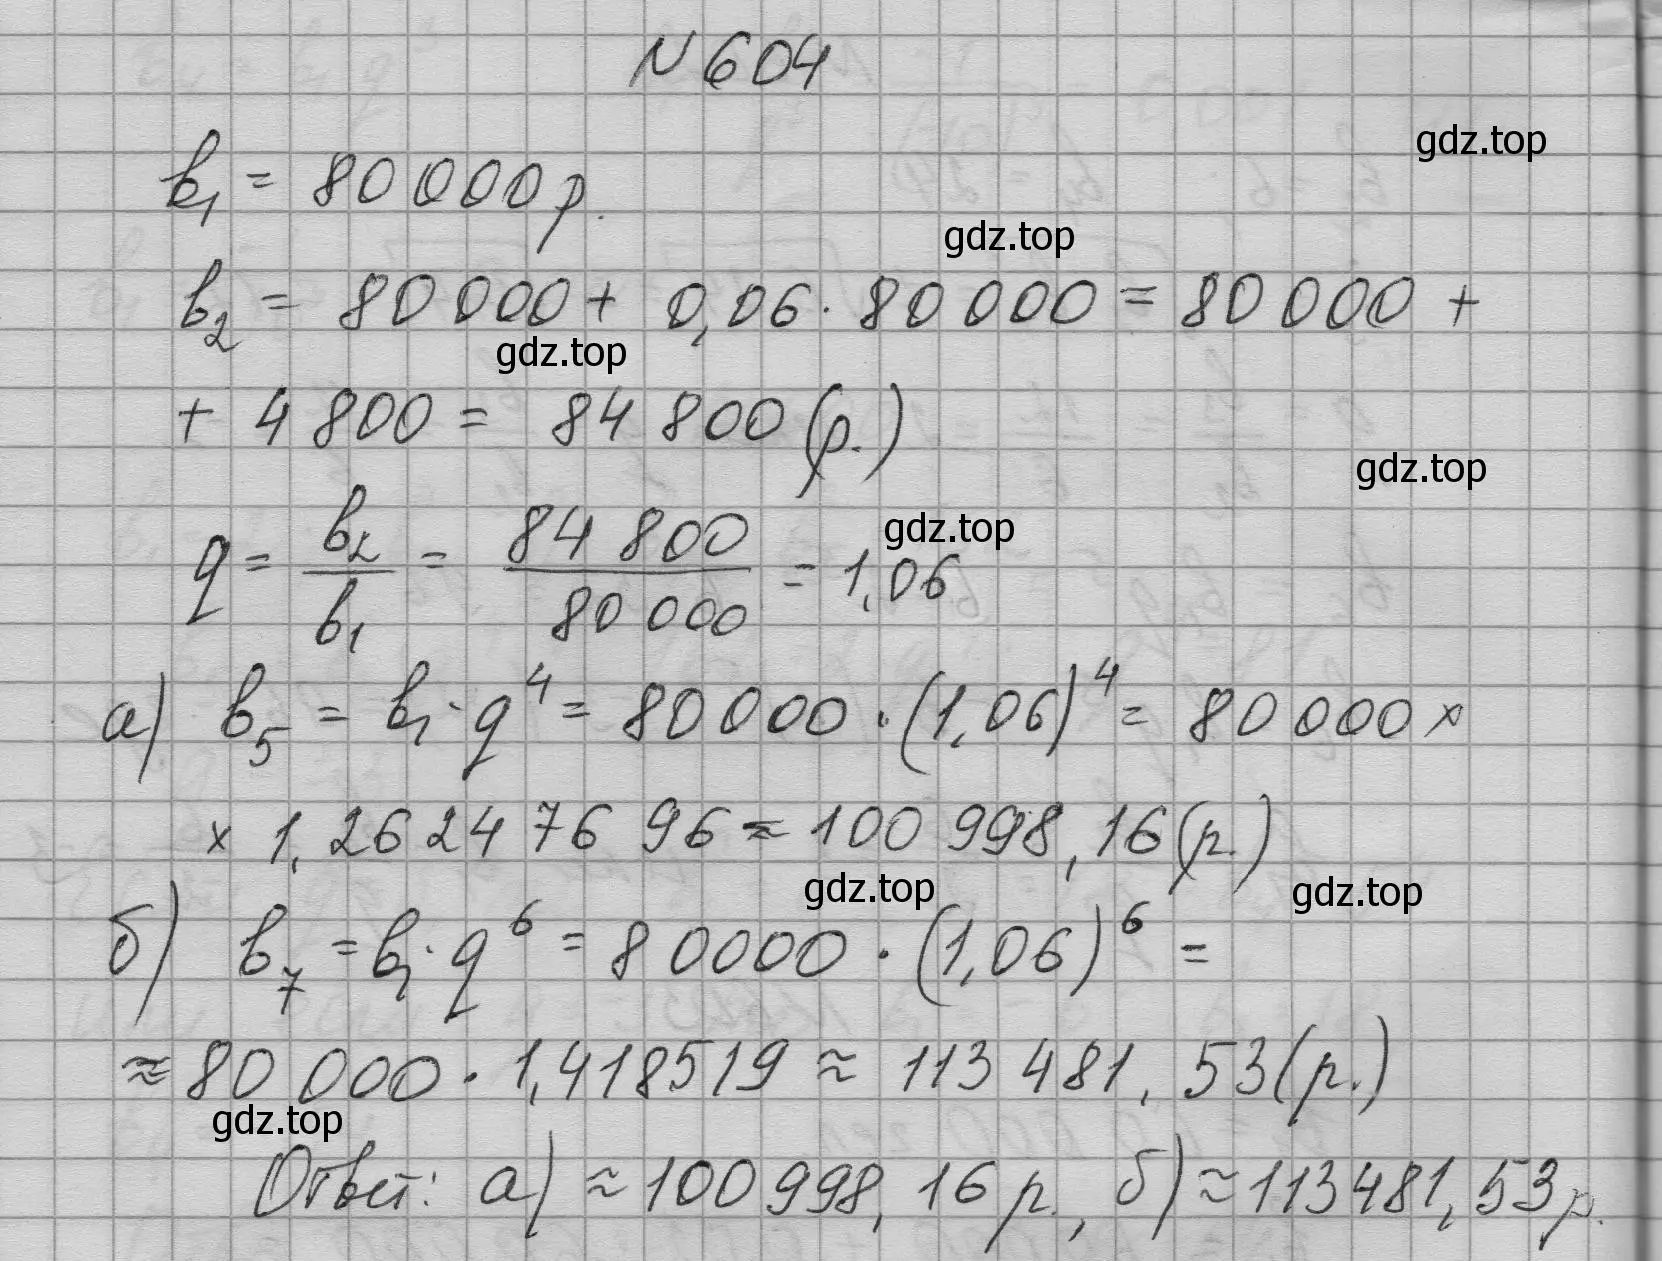 N 604
gdz.top
b₁ = 80 000 р.
gdz.top
b₂ = 80 000 + 0,06 · 80 000 = 80 000 +
gdz.top
+ 4 800 = 84 800 (р.)
gdz.top
q = b₂/b₁ = 84 800/80 000 = 1,06
gdz.top
а) b₅ = b₁ · q⁴ = 80 000 · (1,06)⁴ = 80 000 ×
× 1,262 476 96 ≈ 100 998,16 (р.)
gdz.top
gdz.top
б) b₇ = b₁ · q⁶ = 80000 · (1,06)⁶ =
≈ 80 000 · 1,418519 ≈ 113 481,53 (р.)
gdz.top
Ответ: а) ≈ 100 998,16 р., б) ≈ 113481,53 р.